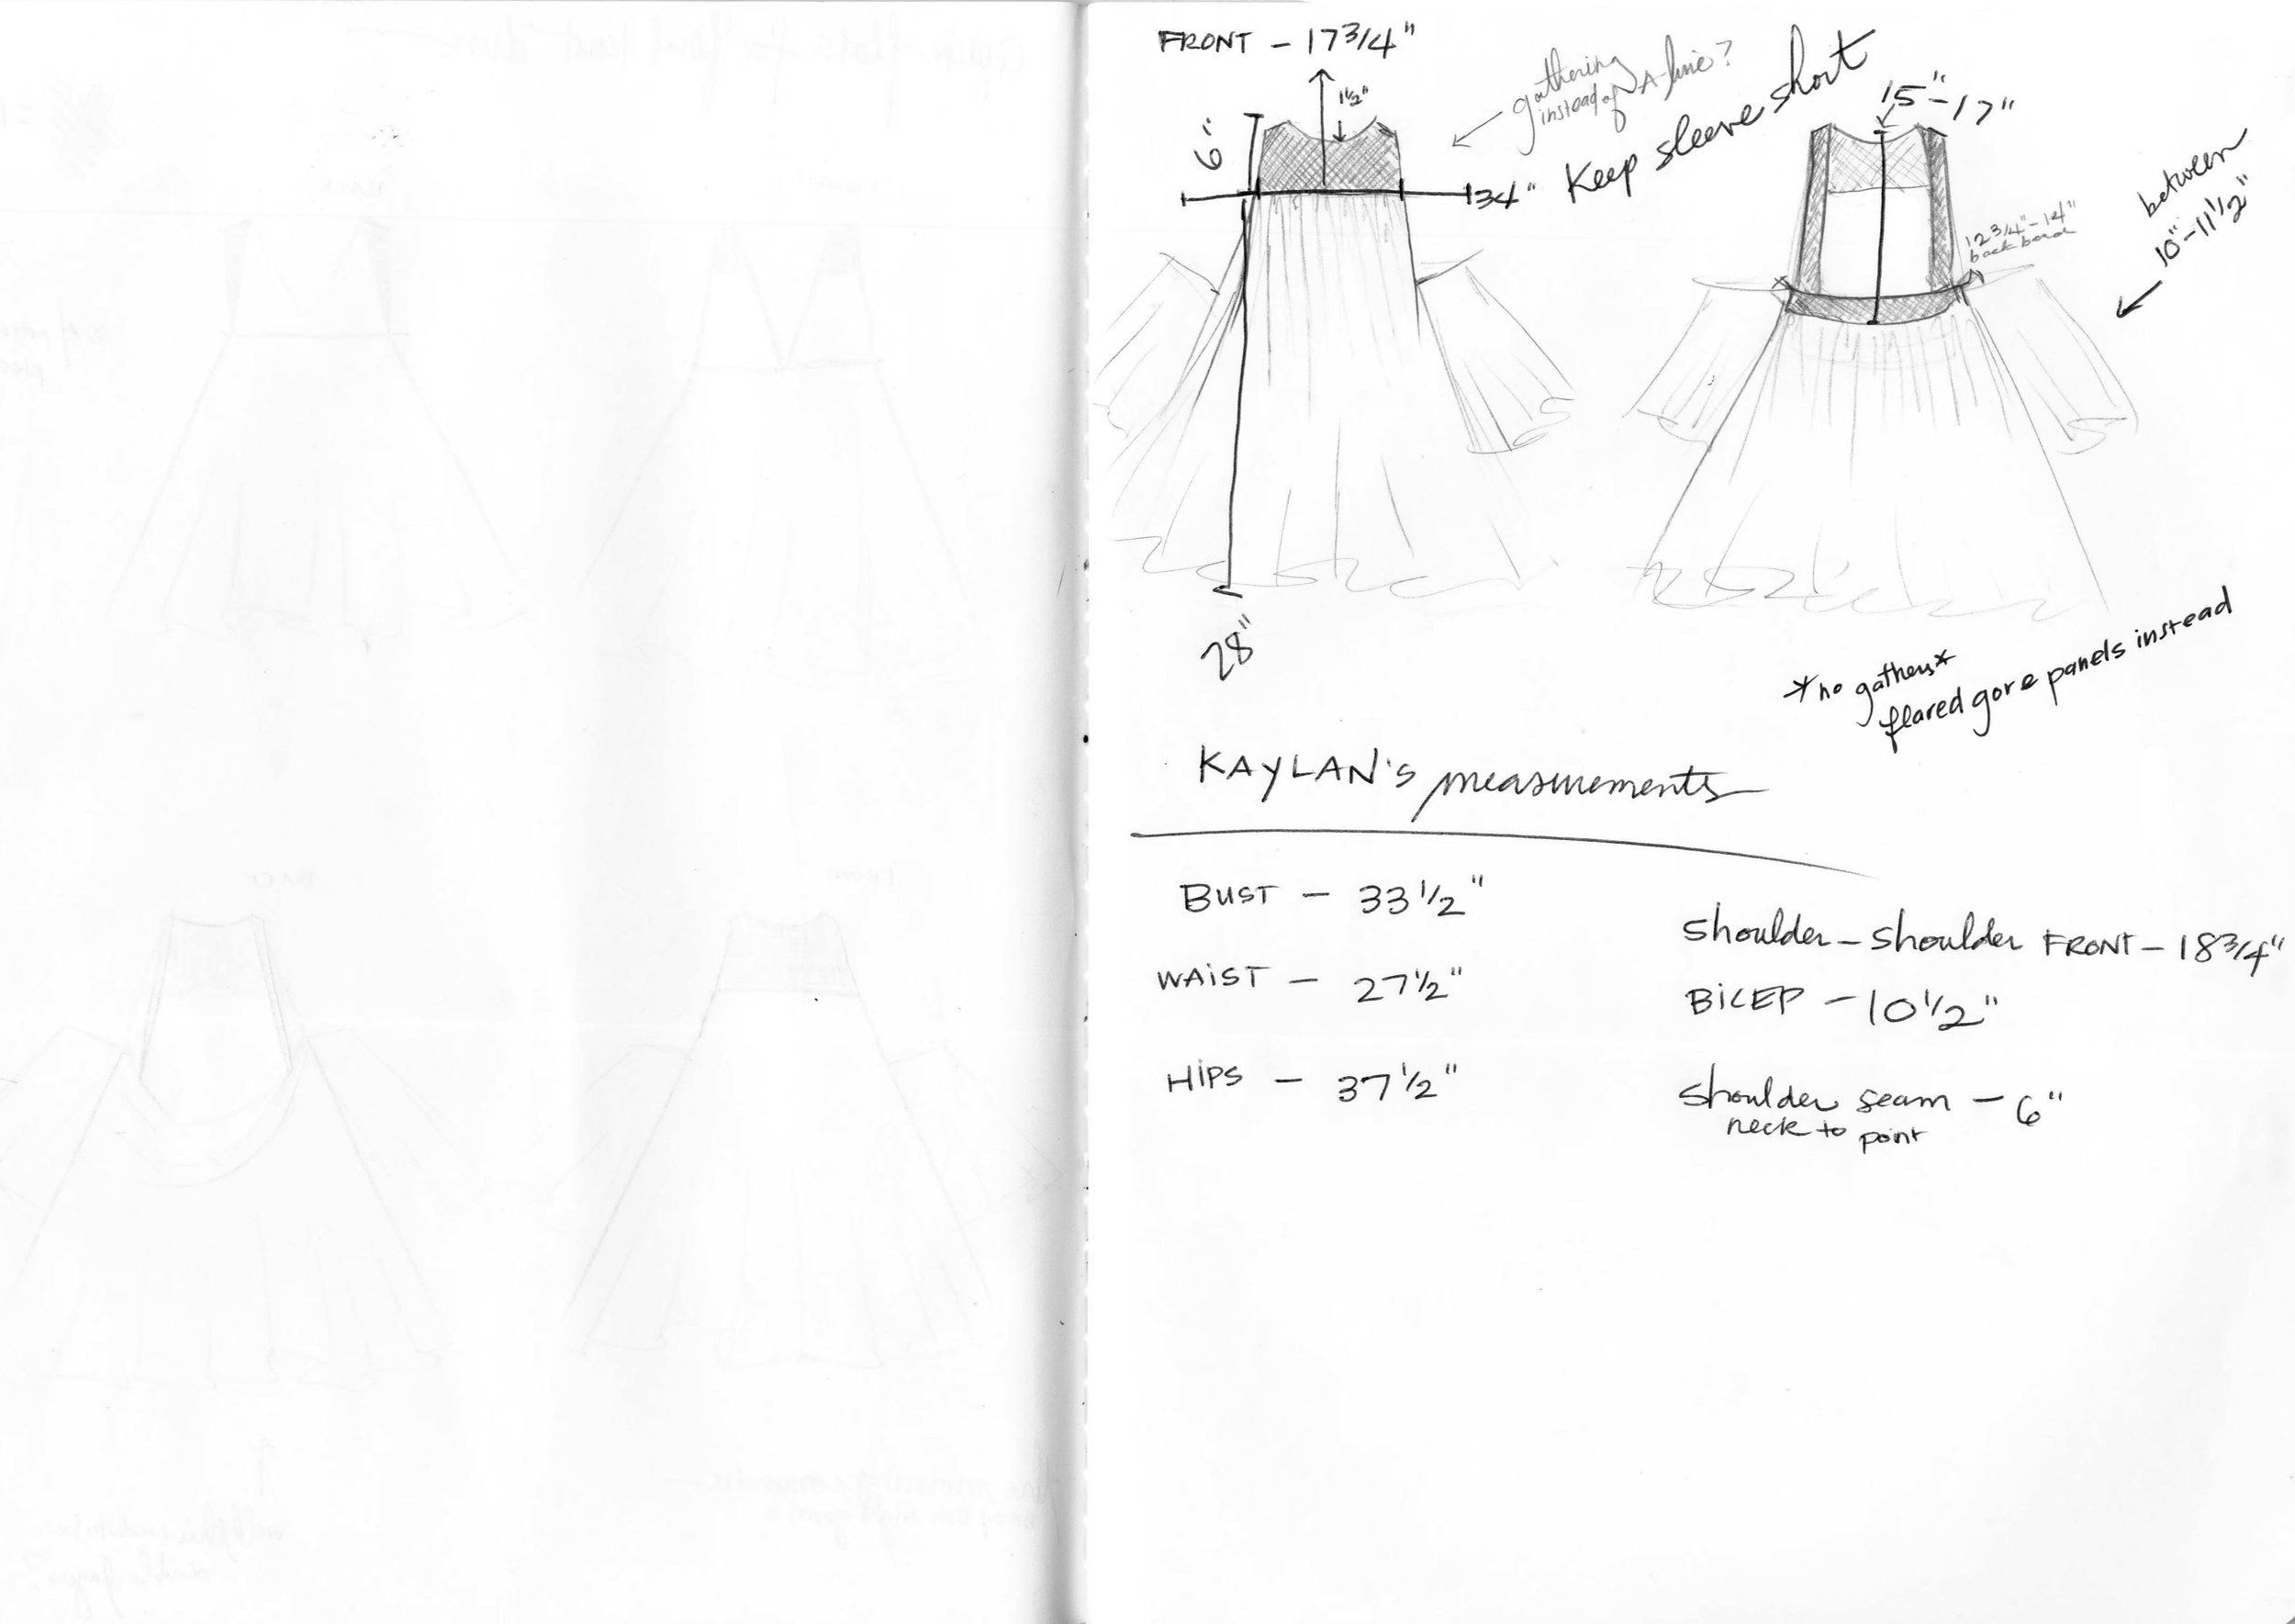 FRONT - 17 3/4"
1 1/2"
6"
34"
28"
gathering
instead of A-line?
Keep sleeve short
15"-17"
12 3/4"-14"
back band
between
10"-11 1/2"
*no gathers*
flared gore panels instead
KAYLAN's measurements
BUST - 33 1/2"
WAIST - 27 1/2"
HIPS - 37 1/2"
Shoulder - Shoulder FRONT - 18 3/4"
BICEP - 10 1/2"
Shoulder seam - 6"
neck to point